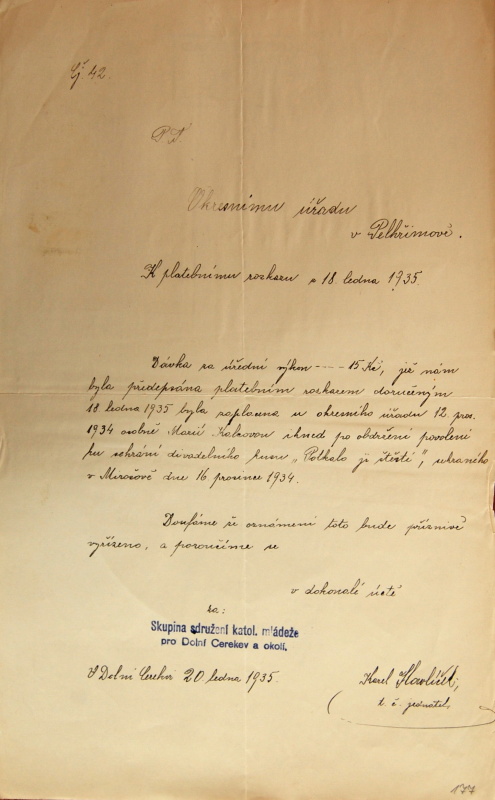 Čj 42.
P. T.
Okresnímu úřadu
v Pelhřimově.
K platebnímu rozkazu z 18. ledna 1935.
Dávka za úřední výkon ---- 15 Kč, jež nám
byla předepsána platebním rozkazem doručeným
18 ledna 1935 byla zaplacena u okresního úřadu 12 pros.
1934 osobně Marií Kalrovou ihned po obdržení povolení
ku sehrání divadelního kusu „Potkalo ji štěstí", sehraného
v Mirošově dne 16 prosince 1934.
Doufáme že oznámení toto bude příznivě
vyřízeno, a poroučíme se
v dokonalé úctě
za:
Skupina sdružení katol. mládeže
pro Dolní Cerekev a okolí,
V Dolní Cerekvi 20 ledna 1935
Karel Havlíček,
t. č. jednatel,
177